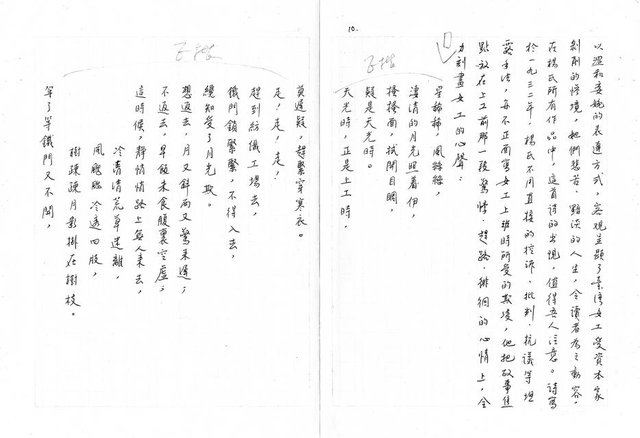 10.
以溫和委婉的表達方式，客觀呈顯了臺灣女工受資本家
剝削的慘境，她們悲苦、黯淡的人生，令讀者為之動容，
在楊氏所有作品中，這首詩的出現，值得吾人注意。詩寫
於一九三二年，楊氏不用直接的控訴、批判、抗議等坦
露手法，每不正面寫女工上班時所受的欺凌，他把故事焦
點放在上工前那一段驚悸、趕路、徘徊的心情上，全
力刻畫女工的心聲。
子楷
星稀稀，風絲絲，
淒清的月光照着伊，
搔搔面，拭開目睭，
疑是天光時。
天光時，正是上工時，
子楷
莫遲疑，趕緊穿寒衣。
走！走！走！
趕到紡織工場去，
鐵門鎖緊緊，不得入去，
纔知受了月光欺。
想返去，月又斜西又驚來遲；
不返去，早飯未食腹裏空虛；
這時候，靜悄悄路上無人來去，
冷清清荒草迷離，
風颼颼冷透四肢，
樹疎疎月影掛在樹枝。
等了等鐵門又不開，